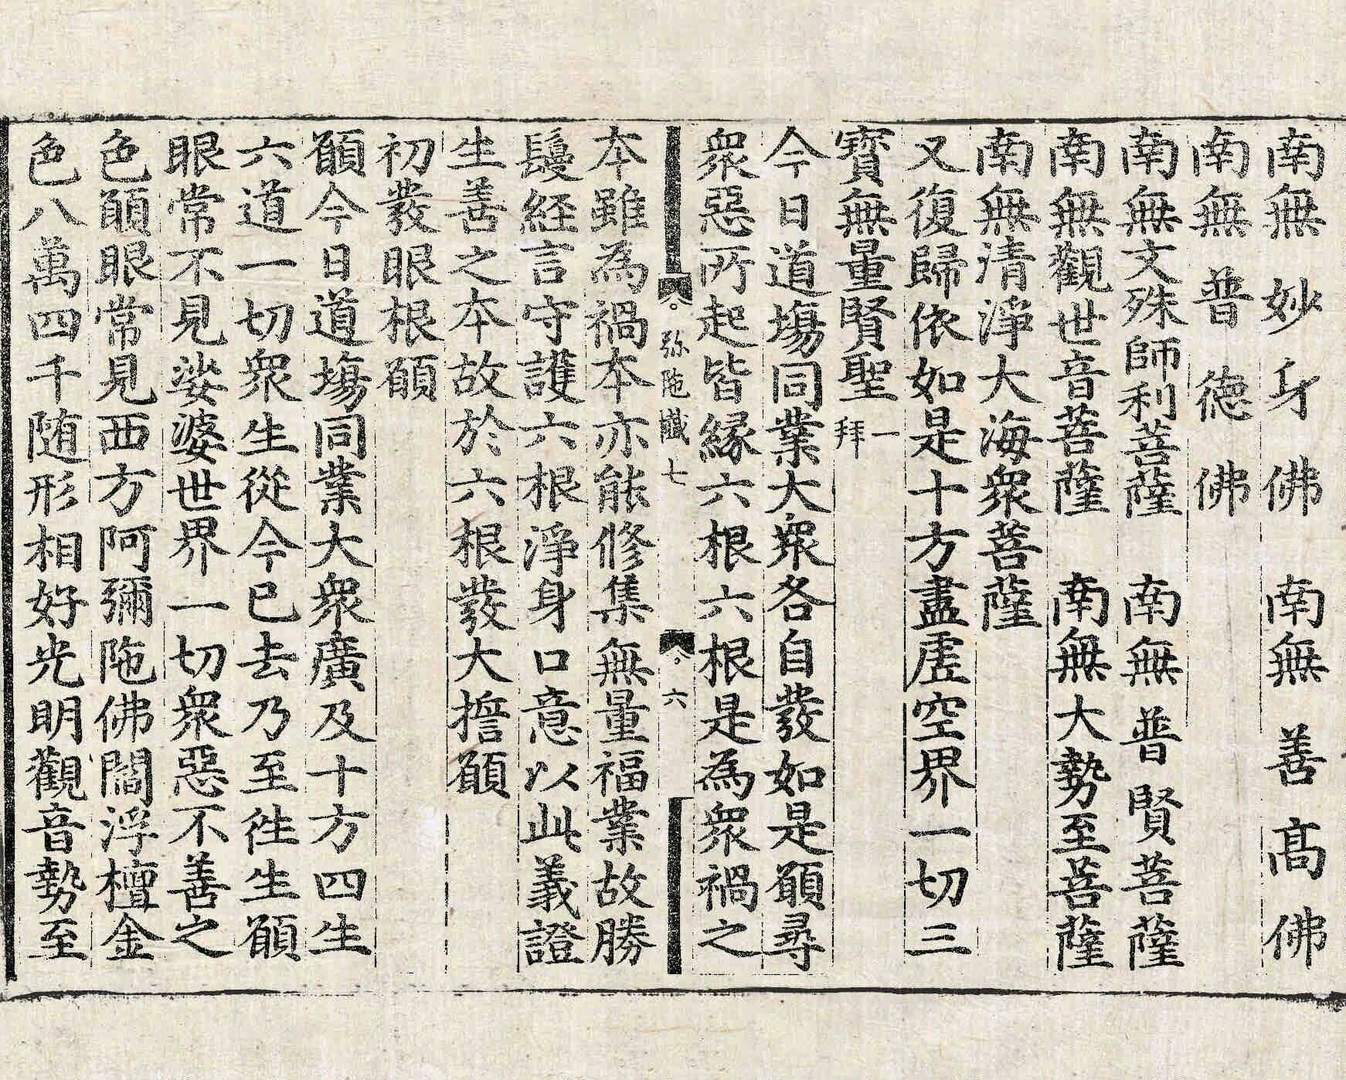 南無妙身佛 南無善高佛
南無普德佛
南無文殊師利菩薩 南無普賢菩薩
南無觀世音菩薩 南無大勢至菩薩
南無清淨大海衆菩薩
又復歸依如是十方盡虛空界一切三
寶無量賢聖 一拜
今日道塲同業大衆各自發如是願尋
衆惡所起皆緣六根六根是為衆禍之
弥陁懺七 六
本雖為禍本亦能修集無量福業故勝
鬘經言守護六根淨身口意以此義證
生善之本故於六根發大擔願
初發眼根願
願今日道塲同業大衆廣及十方四生
六道一切衆生從今已去乃至徃生願
眼常不見娑婆世界一切衆惡不善之
色願眼常見西方阿彌陁佛閻浮檀金
色八萬四千随形相好光明觀音勢至